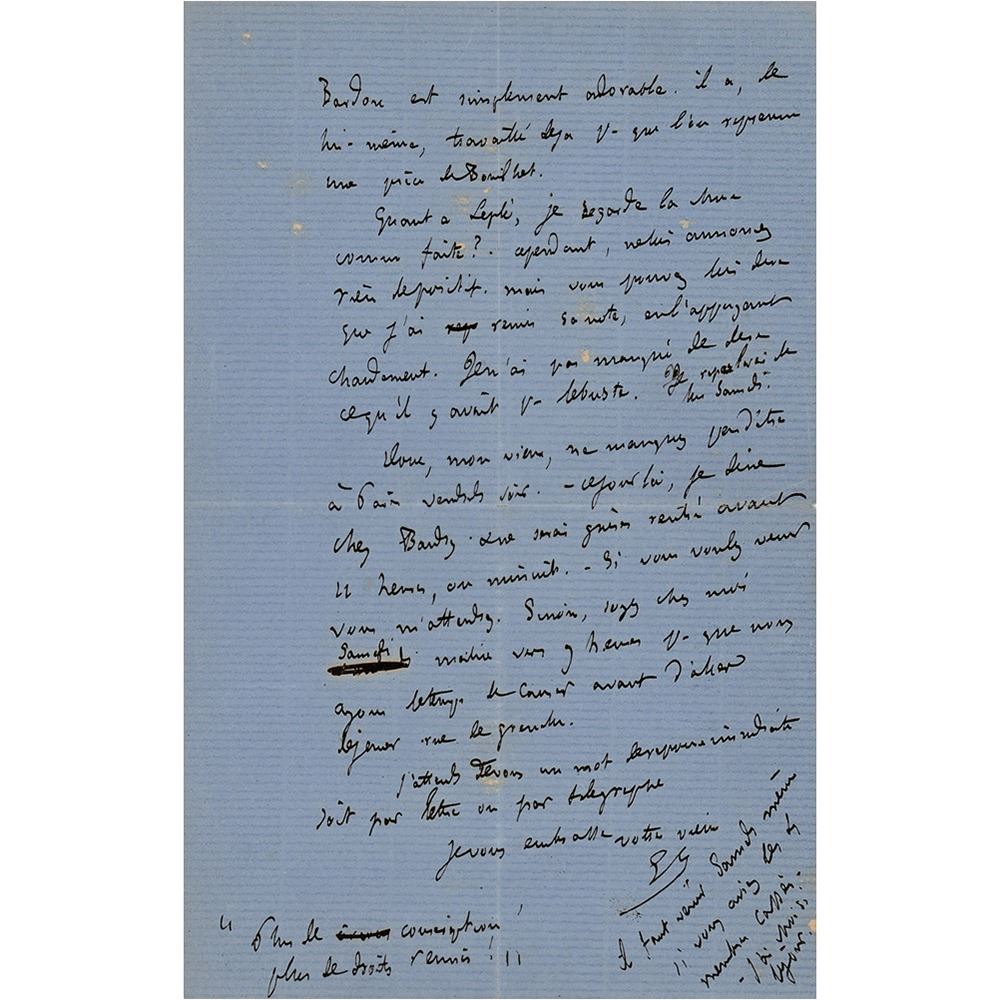 Bardoux est simplement adorable. il a, de
lui-même, travaillé deja pr que l'on reprenne
une pièce de Bouilhet.
Quant a Leplé, je regarde la chose
comme faite?. cependant, ne lui annoncez
rien de positif. mais vous pouvez lui dire
que j'ai remis sa note, en l'appuyant
chaudement. Je n'ai pas manqué de dire
ce qu'il y avait pr le buste. Je reparlerai de
lui Samedi.
Donc, mon vieux, ne manquez pas d'être
à Paris vendredi soir. - ce jour là, je dine
chez Baudry. & ne serai guères rentré avant
11 heures, ou minuit. - Si vous voulez venir
vous m'attendrez. Sinon, soyez chez moi
Samedi matin vers 9 heures pr que nous
ayons le temps de causer avant d'aller
dejeuner rue de grenelle.
J'attends de vous un mot de reponse immediate
soit par lettre ou par telegraphe
Je vous embrasse votre vieux
"Plus de conscription!
plus de droits reunis!"
il faut venir Samedi même
si vous aviez les
membres cassés. -
- J'ai choisi
le jour.